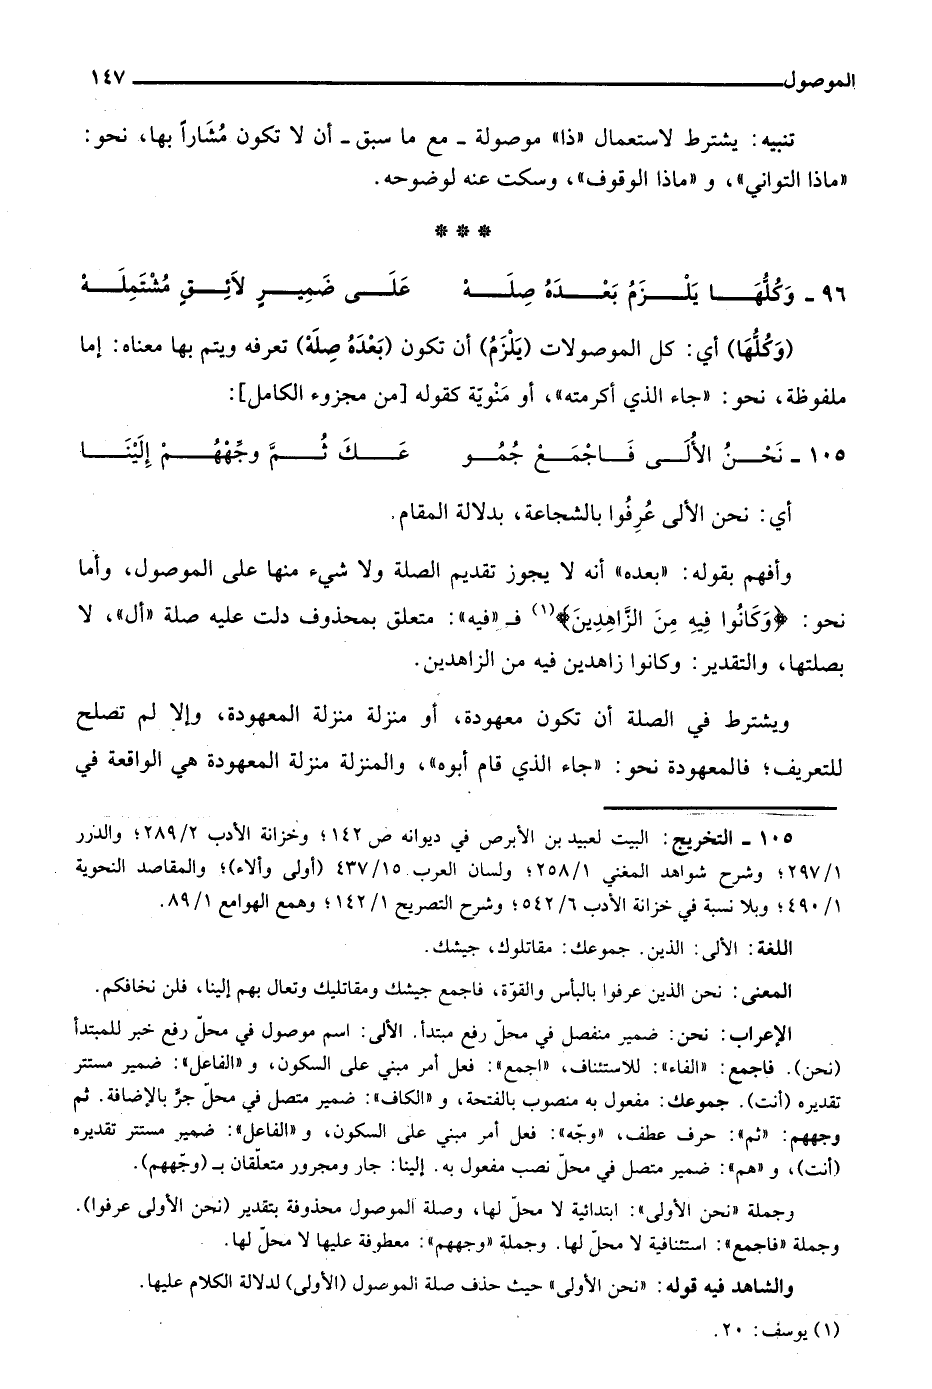 الموصول ١٤٧
تنبيه: يشترط لاستعمال «ذا» موصولة ـ مع ما سبق ـ أن لا تكون مُشَاراً بها، نحو:
«ماذا التواني»، و «ماذا الوقوف»، وسكت عنه لوضوحه.
* * *
٩٦ ـ وَكُلُّهَـا يَلْـزَمُ بَعْـدَهُ صِلَـهْ عَلَـى ضَمِيـرٍ لاَئِـقٍ مُشْتَمِلَـهْ
(وَكُلُّهَا) أي: كل الموصولات (يَلْزَمُ) أن تكون (بَعْدَهُ صِلَهْ) تعرفه ويتم بها معناه: إما
ملفوظة، نحو: «جاء الذي أكرمته»، أو مَنْويّة كقوله [من مجزوء الكامل]:
١٠٥ ـ نَحْـنُ الأُلَـى فَـاجْمَـعْ جُمُـو عَـكَ ثُـمَّ وجِّهْهُـمْ إِلَيْنَـا
أي: نحن الألى عُرِفُوا بالشجاعة، بدلالة المقام.
وأفهم بقوله: «بعده» أنه لا يجوز تقديم الصلة ولا شيء منها على الموصول، وأما
نحو: ﴿وَكَانُوا فِيهِ مِنَ الزَّاهِدِينَ﴾(١) فـ «فيه»: متعلق بمحذوف دلت عليه صلة «أل»، لا
بصلتها، والتقدير: وكانوا زاهدين فيه من الزاهدين.
ويشترط في الصلة أن تكون معهودة، أو منزلة منزلة المعهودة، وإلا لم تصلح
للتعريف؛ فالمعهودة نحو: «جاء الذي قام أبوه»، والمنزلة منزلة المعهودة هي الواقعة في
١٠٥ ـ التخريج: البيت لعبيد بن الأبرص في ديوانه ص ١٤٢؛ وخزانة الأدب ٢/٢٨٩؛ والدرر
١/٢٩٧؛ وشرح شواهد المغني ١/٢٥٨؛ ولسان العرب ١٥/٤٣٧ (أولى وألاء)؛ والمقاصد النحوية
١/٤٩٠؛ وبلا نسبة في خزانة الأدب ٦/٥٤٢؛ وشرح التصريح ١/١٤٢؛ وهمع الهوامع ١/٨٩.
اللغة: الألى: الذين. جموعك: مقاتلوك، جيشك.
المعنى: نحن الذين عرفوا بالبأس والقوّة، فاجمع جيشك ومقاتليك وتعال بهم إلينا، فلن نخافكم.
الإعراب: نحن: ضمير منفصل في محلّ رفع مبتدأ. الألى: اسم موصول في محلّ رفع خبر للمبتدأ
(نحن). فاجمع: «الفاء»: للاستئناف، «اجمع»: فعل أمر مبني على السكون، و «الفاعل»: ضمير مستتر
تقديره (أنت). جموعك: مفعول به منصوب بالفتحة، و «الكاف»: ضمير متصل في محلّ جرٍّ بالإضافة. ثم
وجههم: «ثم»: حرف عطف، «وجّه»: فعل أمر مبني على السكون، و «الفاعل»: ضمير مستتر تقديره
(أنت)، و «هم»: ضمير متصل في محلّ نصب مفعول به. إلينا: جار ومجرور متعلّقان بـ (وجّههم).
وجملة «نحن الأولى»: ابتدائية لا محلّ لها، وصلة الموصول محذوفة بتقدير (نحن الأولى عرفوا).
وجملة «فاجمع»: استئنافية لا محلّ لها. وجملة «وجههم»: معطوفة عليها لا محلّ لها.
والشاهد فيه قوله: «نحن الأولى» حيث حذف صلة الموصول (الأولى) لدلالة الكلام عليها.
(١) يوسف: ٢٠.